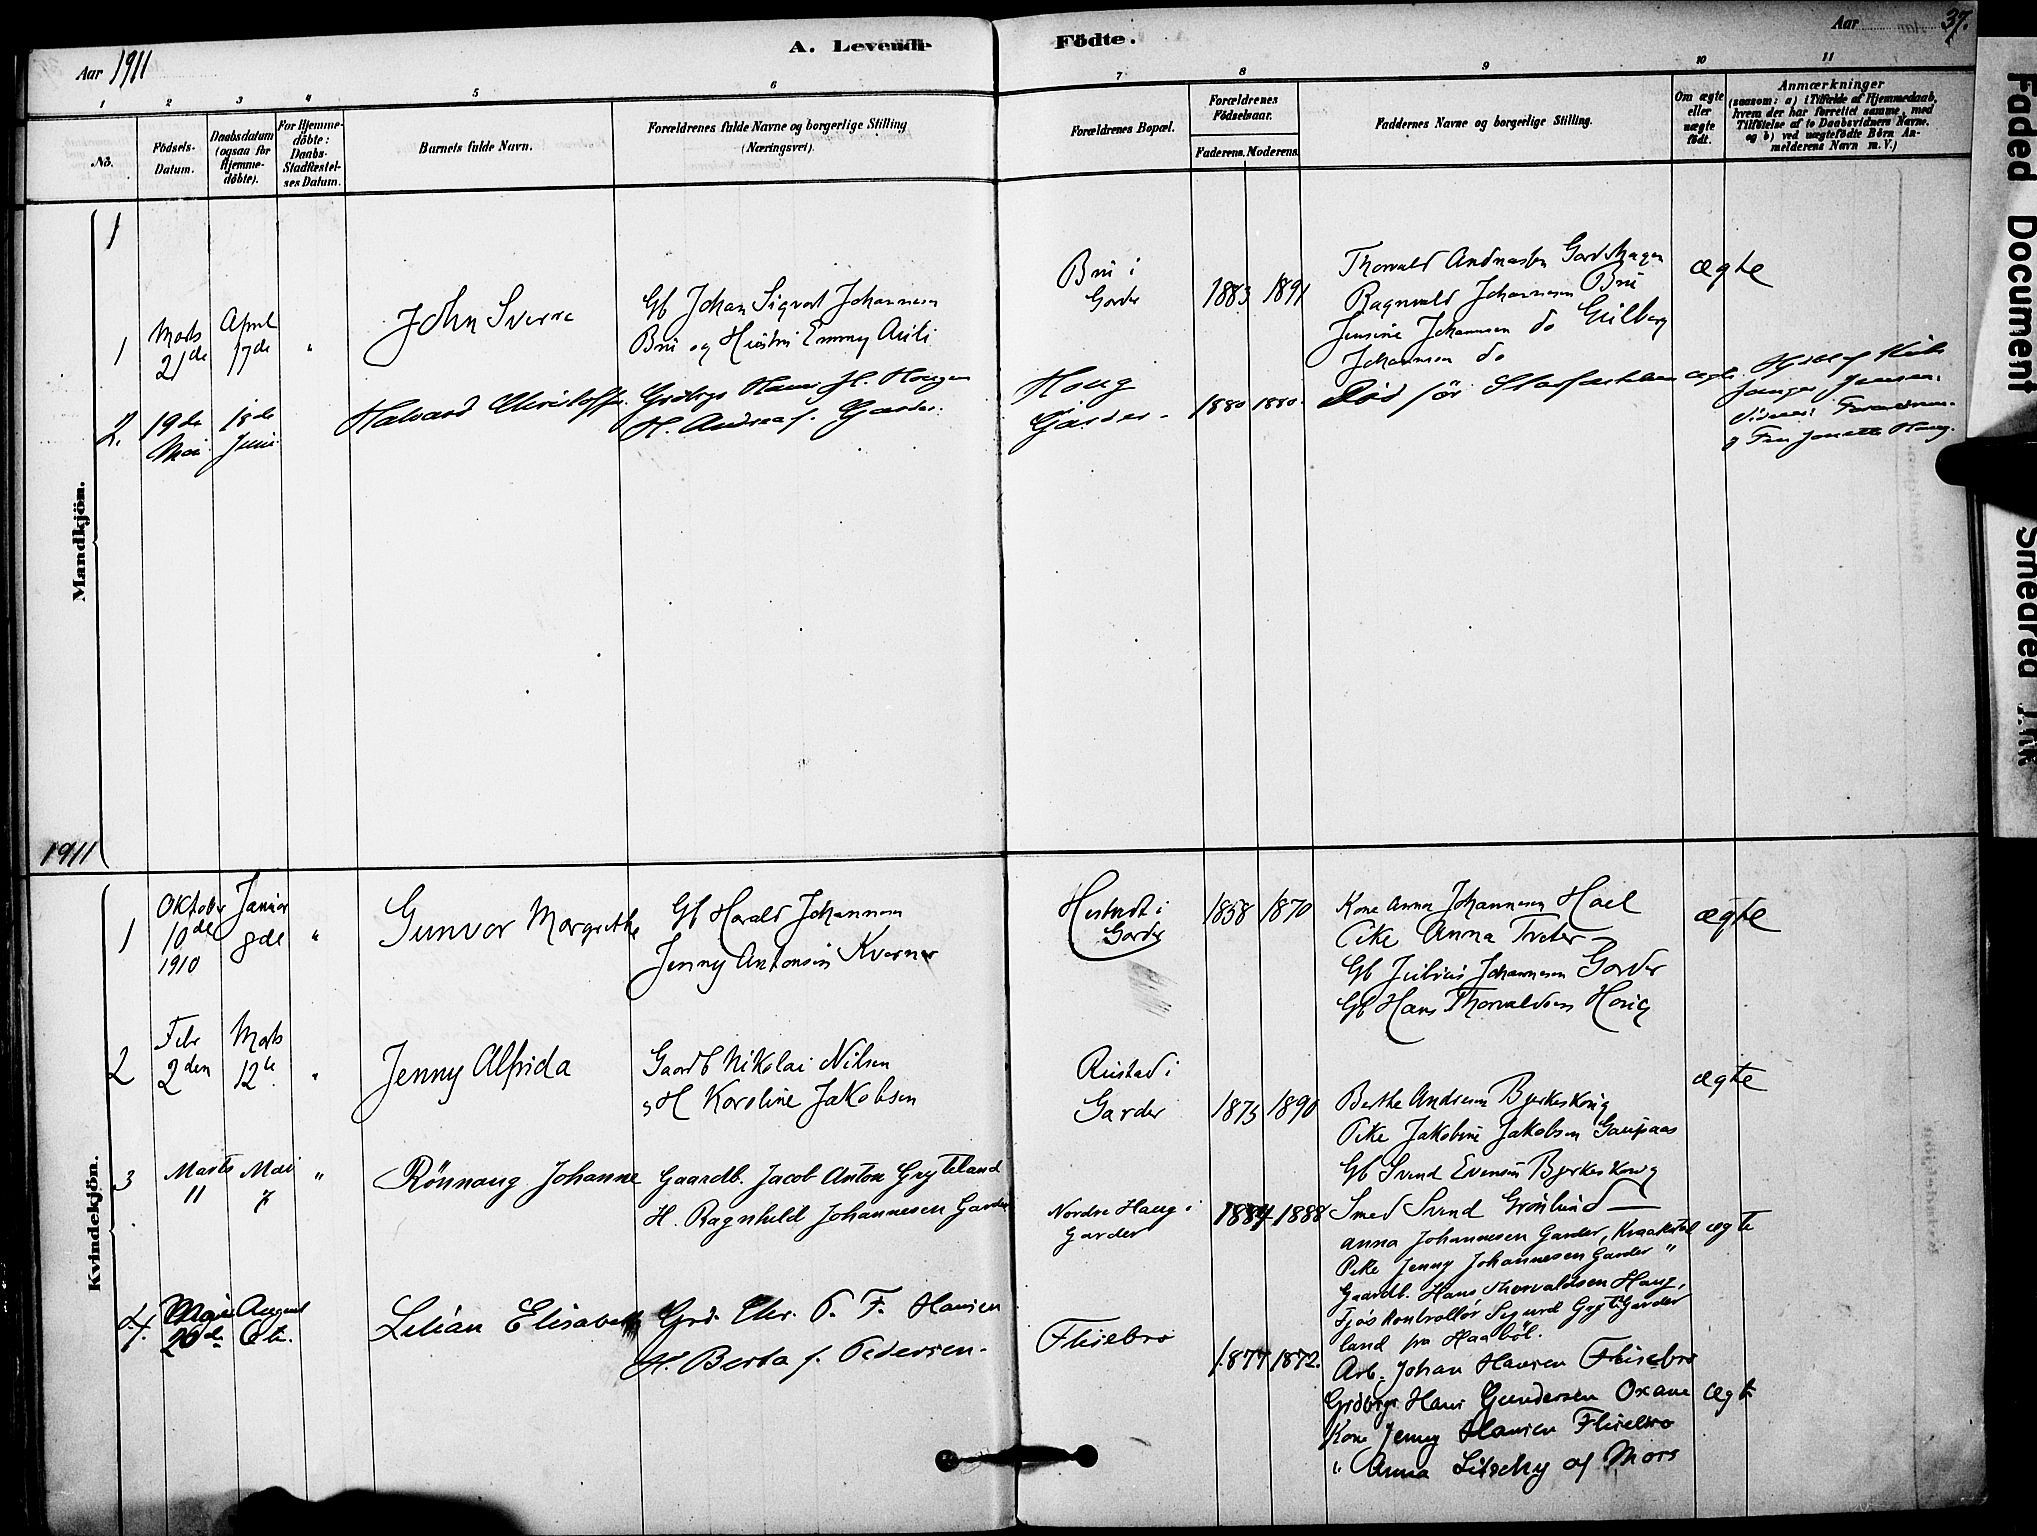 A. Levende Födte.
Aar 1911
Aar 37.
1 2 3 4 5 6 7 8 9 10 11
No.
Födsels-Datum.
Daabsdatum (ogsaa for Hjemme-döbte).
For Hjemme-döbte: Daabs-Stadfæstel-ses Datum.
Barnets fulde Navn.
Forældrenes fulde Navne og borgerlige Stilling (Næringsvei).
Forældrenes Bopæl.
Forældrenes Födselsaar.
Faderens. Moderens.
Faddernes Navne og borgerlige Stilling.
Om ægte eller uægte födt.
Anmærkninger
(saasom: a) i Tilfælde af Hjemmedaab,
hvem der har forrettet samme, med
Tilföielse af to Daabsvidners Navne.
og b) ved uægtefödte Börn An-
melderens Navn m.V.)
Mandkjön.
1
1 Marts 21de April 17de "
John Sverre
Gb Johan Sigvart Johannesen
Bru og Hustru Emmy
Bru i
Garder
1883 1891
Thorvald Andreasen
Ragnvald Johannesen Bru
Johannesen do
Johannesen do
ægte
2. 19de Mai 18de Juni
Halvard Christoffer
Grdbrgr Hans H. Haugen
H. Andrea f. Garder.
Haug
Garder.
1880 1880.
Död för Stadfæstelsen
ægte
Jensen.
Fru Jonette Haug.
1911
Kvindekjön.
1 Oktober 10de 1910 Januar 8de "
Gunvor Margrethe
Gb Harald Johannesen
Jenny Antonsen Kverner
Garder
1858 1870
Kone Anna Johannesen Hoel
Pike Anna Treter
Gb Julius Johannesen Garder
Gb Hans Thorvaldsen Haug
ægte
2 Febr 2den Marts 12te "
Jenny Alfrida
Gaardb Nikolai Nilsen
H Karoline Jakobsen
Rustad i
Garder
1875 1890
Berthe Andersen Bjerkeskoug
Pike Jakobine Jakobsen Gaupaas
Gb Svend Evensen Bjerkeskoug
Smed Svend Grönlund
ægte
3 Marts 11 Mai 7 "
Rönnaug Johanne
Gaardb. Jacob Anton Gryteland
H. Ragnhild Johannesen Garder
Nordre Haug i
Garder
1884 1888
Anna Johannesen Garder, Kraakstad
Pike Jenny Johannesen Garder "
Gaardb. Hans Thorvaldsen Haug,
Fjöskontrollör Sigurd Gryte- Garder
land fra Haaböl.
ægte
4. Mai 20de August 6te.
Lilian Elisabeth
Grd. Chr. P. F. Hansen
H. Berta f. Pedersen.
Flisebro
1877 1872.
Arb. Johan Hansen Flisebro
Grdbrgr Hans Gundersen Oxane
Kone Jenny Hansen Flisebro
" Anna of Mors
ægte
Faded Document
Smeared Ink